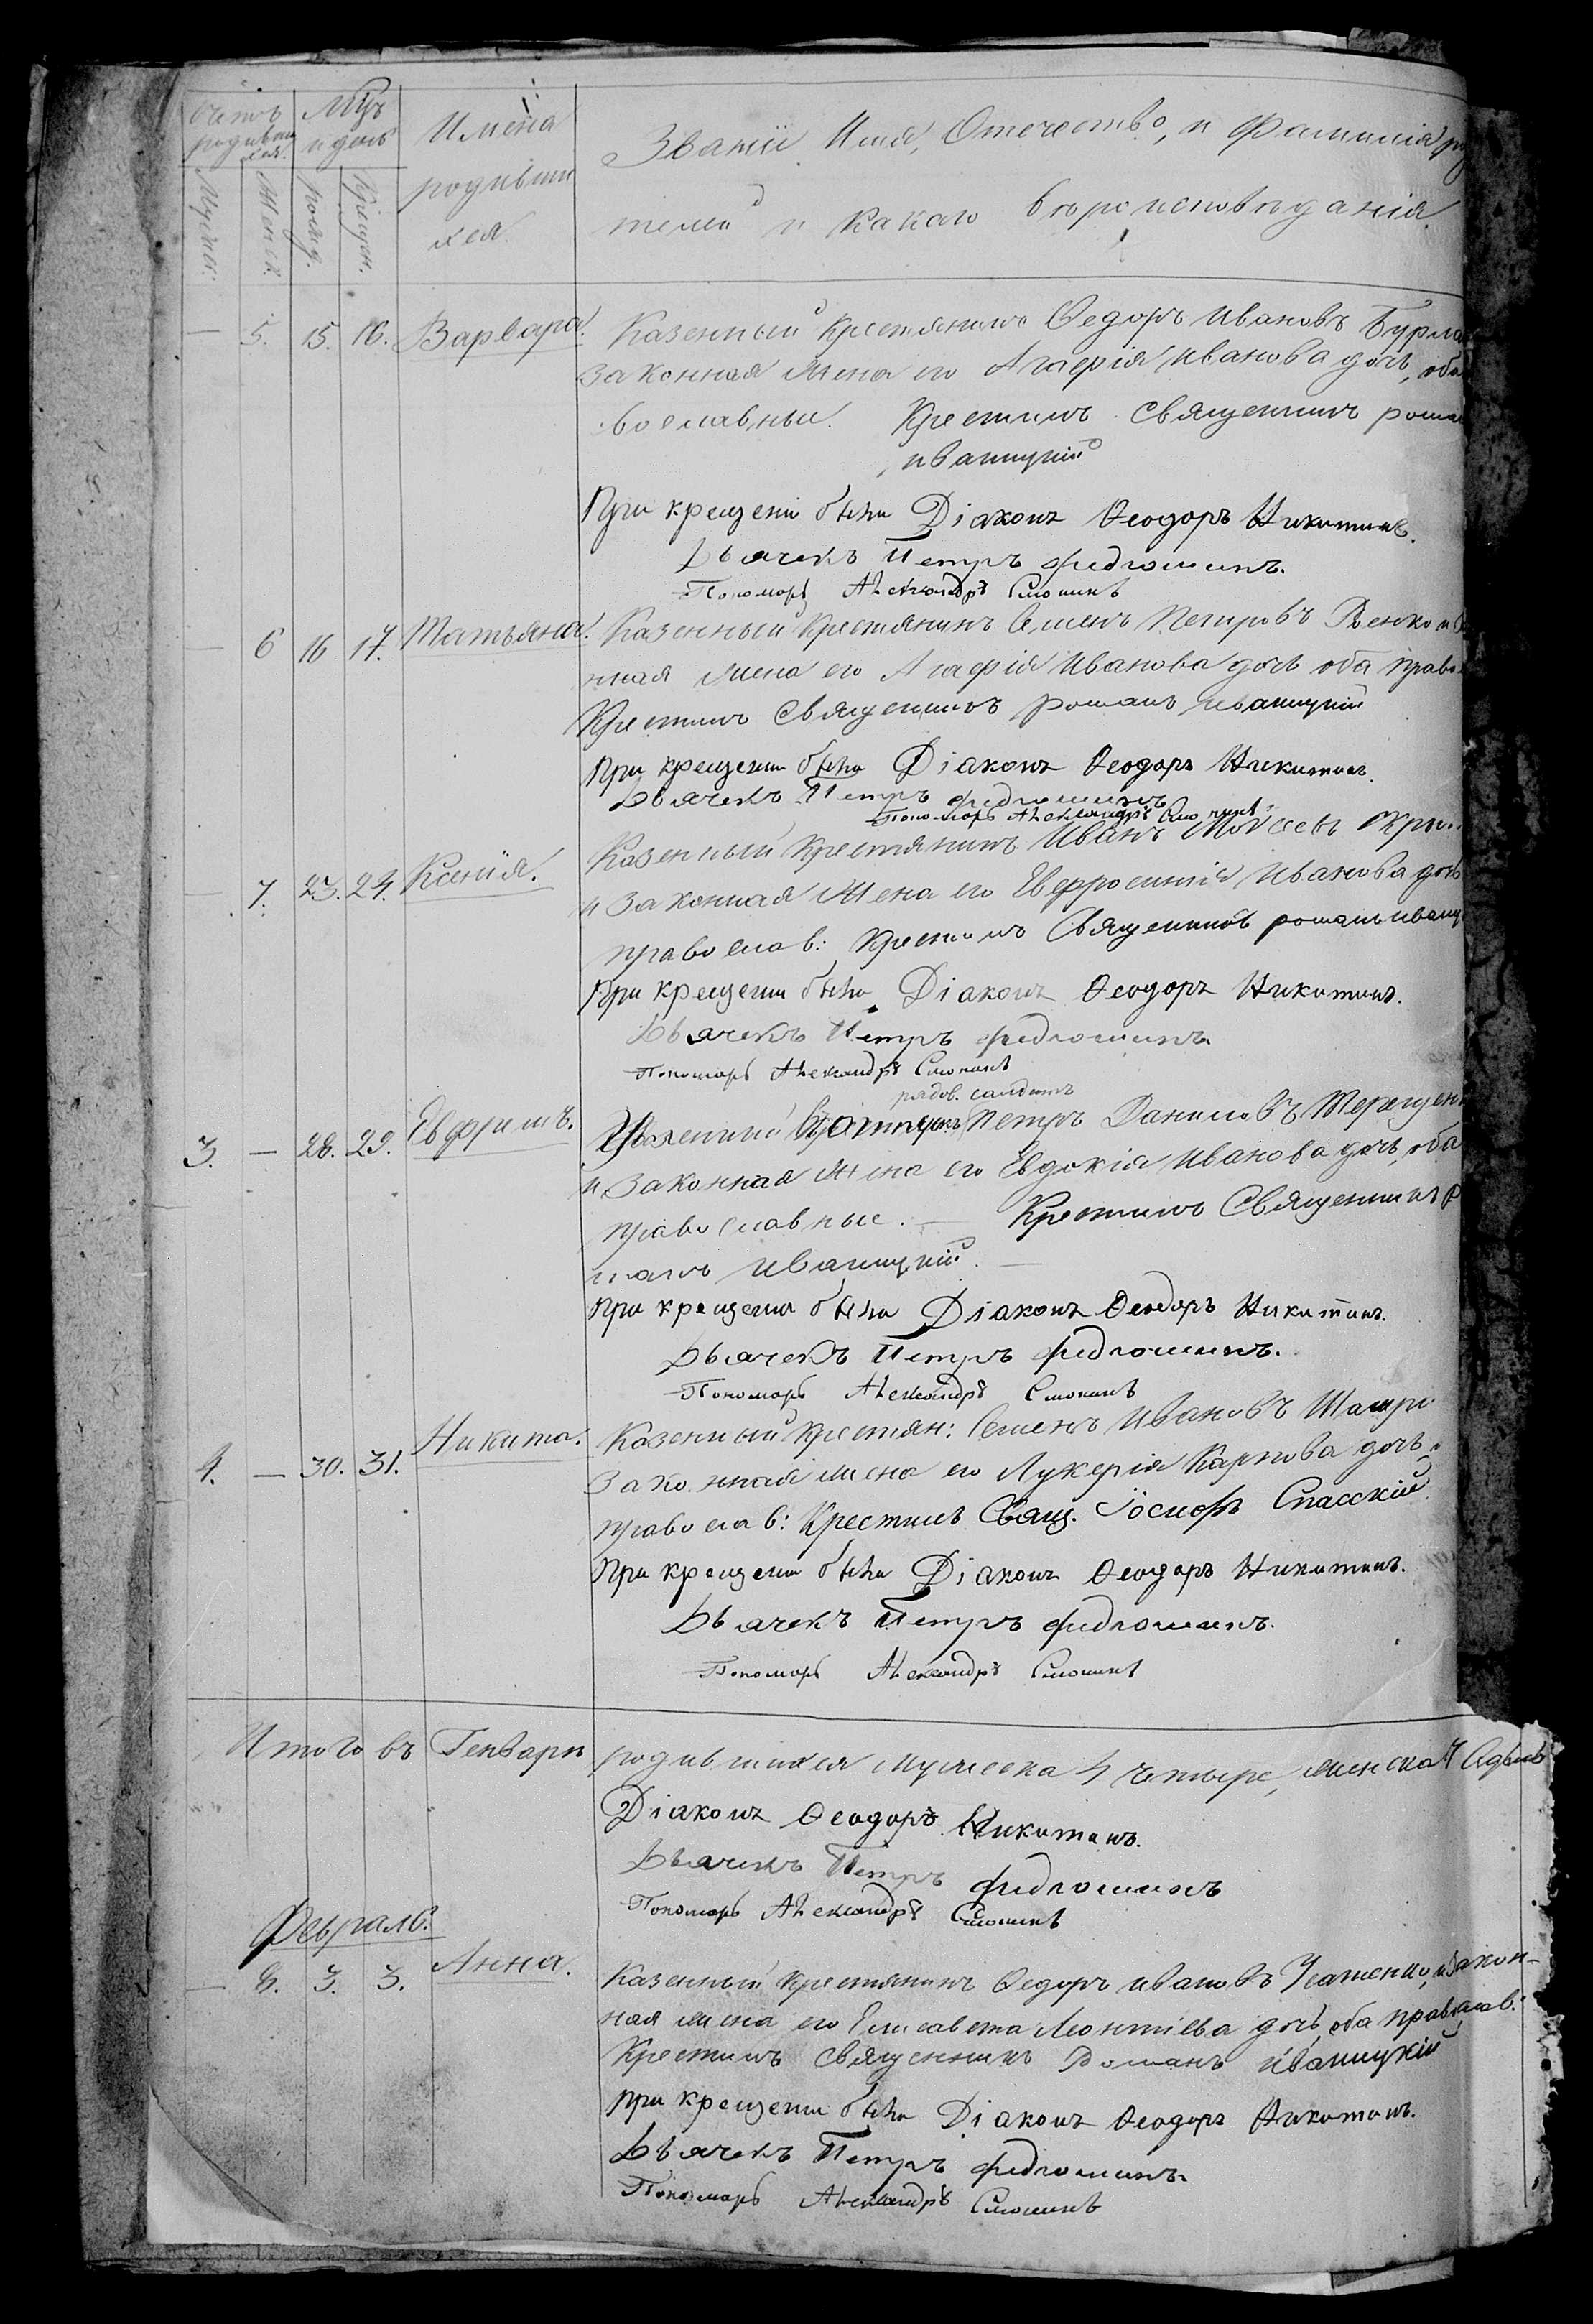 Счетъ родившихся.
Мцъ и день
Имена родившихся.
Званіи Имя, Отечество, и Фамилія ро
телей и какаго вѣроисповѣданія.
Мужеск.
Женск.
рожд.
Крещен.
— 5. 15. 16. Варвара. Казенный крестянинъ Ѳедоръ Ивановъ Бурла
законная жена его Агафія Иванова дочь, оба
вославныи. Крестилъ Священникъ рома
иваницкій
При крещеніи были Діаконъ Ѳеодоръ Никитинъ.
Дьячекъ Петръ
Пономарь Александръ
— 6 16 17. Татьяна. Казенный Крестянинъ Семенъ Петровъ
нная жена его Агафія Иванова дочь оба право
Крестилъ Священникъ романъ иваницкій
При крещеніи были Діаконъ Ѳеодоръ Никитинъ.
Дьячекъ Петръ
Пономарь Александръ
— 7. 23. 24. Ксенія. Казенный Крестянинъ Иванъ
и законная Жена его Евфросинія Иванова дочь
православ: Крестилъ Священникъ романъ иваниц
При крещеніи были Діаконъ Ѳеодоръ Никитинъ.
Дьячекъ Петръ
Пономарь Александръ
рядов. салдатъ
3. — 28. 29. Евфримъ. Петръ Даниловъ Терещен
и законная жена его Евдокія Иванова дочь, оба
православные. — Крестилъ Священникъ р
манъ иваницкій. —
При крещеніи были Діаконъ Ѳеодоръ Никитинъ.
Дьячекъ Петръ
Пономарь Александръ
4. — 30. 31. Никита. Казенный Крестян: Семенъ Ивановъ
законная жена его Лукерія Карпова дочь
православ: Крестилъ Свящ. Іосифъ Спасскій
При крещеніи были Діаконъ Ѳеодоръ Никитинъ.
Дьячекъ Петръ
Пономарь Александръ
Итого въ Генвари родившихся мужеска 4 четыре, женска 7 Седмь
Діаконъ Ѳеодоръ Никитинъ.
Дьячекъ Петръ
Пономарь Александръ
Февраль.
— 8. 3. 3. Анна. Казенный крестянинъ Ѳедоръ Ивановъ и закон-
ная жена его Елисавета Леонтіева дочь, оба православ:
Крестилъ Священникъ Романъ иваницкій
При крещеніи были Діаконъ Ѳеодоръ Никитинъ.
Дьячекъ Петръ
Пономарь Александръ